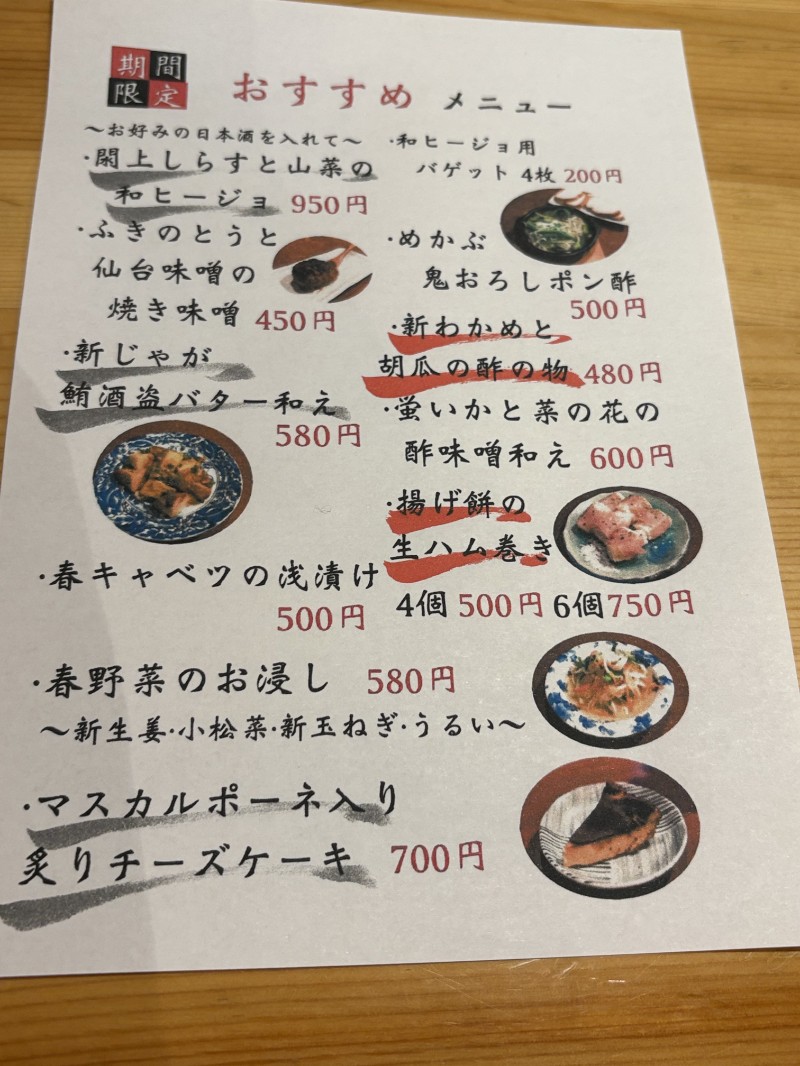 期間限定
おすすめ メニュー
～お好みの日本酒を入れて～
・閖上しらすと山菜の
和ヒージョ 950円
・ふきのとうと
仙台味噌の
焼き味噌 450円
・新じゃが
鮪酒盗バター和え
580円
・春キャベツの浅漬け
500円
・和ヒージョ用
バゲット 4枚 200円
・めかぶ
鬼おろしポン酢
500円
・新わかめと
胡瓜の酢の物 480円
・蛍いかと菜の花の
酢味噌和え 600円
・揚げ餅の
生ハム巻き
4個 500円 6個750円
・春野菜のお浸し 580円
～新生姜・小松菜・新玉ねぎ・うるい～
・マスカルポーネ入り
炙りチーズケーキ 700円